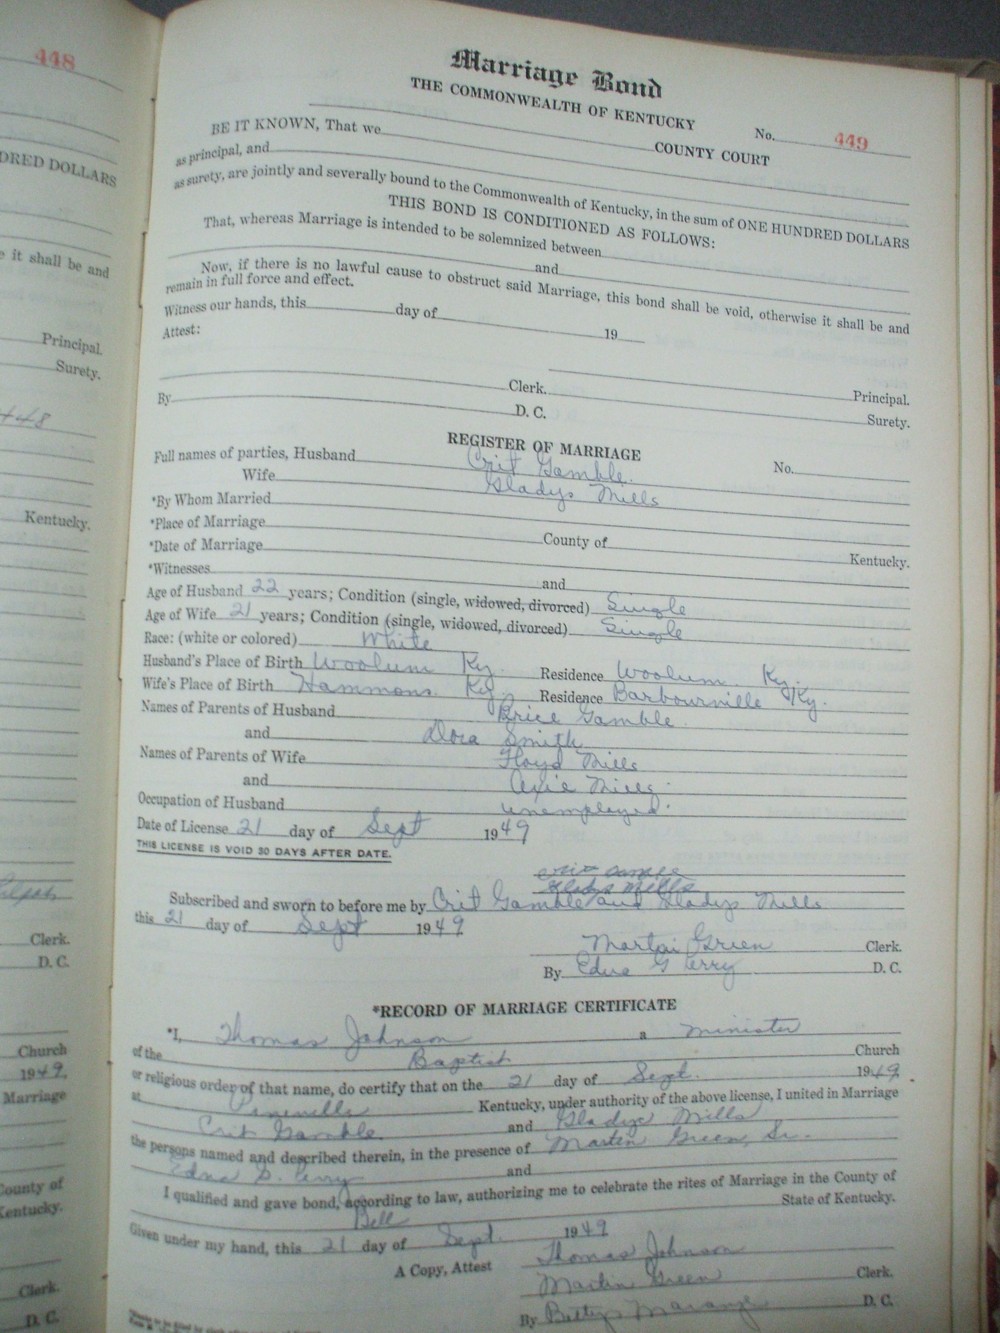 448
DRED DOLLARS
e it shall be and
Principal.
Surety.
Kentucky.
Clerk.
D. C.
Church
1949.
Marriage
County of
Kentucky.
Clerk.
D. C.
Marriage Bond
THE COMMONWEALTH OF KENTUCKY
No. 449
COUNTY COURT
BE IT KNOWN, That we
as principal, and
as surety, are jointly and severally bound to the Commonwealth of Kentucky, in the sum of ONE HUNDRED DOLLARS
THIS BOND IS CONDITIONED AS FOLLOWS:
That, whereas Marriage is intended to be solemnized between
and
Now, if there is no lawful cause to obstruct said Marriage, this bond shall be void, otherwise it shall be and
remain in full force and effect.
Witness our hands, this day of 19
Attest:
Principal.
Clerk. Surety.
By D. C.
REGISTER OF MARRIAGE
Full names of parties, Husband Crit Gamble. No.
Wife Gladys Mills
*By Whom Married
*Place of Marriage
*Date of Marriage County of Kentucky.
*Witnesses and
Age of Husband 22 years; Condition (single, widowed, divorced) Single
Age of Wife 21 years; Condition (single, widowed, divorced) Single
Race: (white or colored) White
Husband's Place of Birth Woolum Ky. Residence Woolum. Ky.
Wife's Place of Birth Hammons. Ky. Residence Barbourville Ky.
Names of Parents of Husband Brice Gamble.
and Dora Smith
Names of Parents of Wife Floyd Mills
and Axie Mills
Occupation of Husband unemployed.
Date of License 21 day of Sept 1949
THIS LICENSE IS VOID 30 DAYS AFTER DATE.
Crit Gamble
Gladys Mills
Subscribed and sworn to before me by Crit Gamble and Gladys Mills
this 21 day of Sept 1949
Martin Green Clerk.
By Edna G Perry D. C.
*RECORD OF MARRIAGE CERTIFICATE
*I, Thomas Johnson a minister
of the Baptist Church
or religious order of that name, do certify that on the 21 day of Sept. 1949.
at Pineville Kentucky, under authority of the above license, I united in Marriage
Crit Gamble. and Gladys Mills
the persons named and described therein, in the presence of Martin Green, Sr.
Edna G. Perry and
I qualified and gave bond, according to law, authorizing me to celebrate the rites of Marriage in the County of
Bell State of Kentucky.
Given under my hand, this 21 day of Sept. 1949
A Copy, Attest Thomas Johnson
Martin Green Clerk.
By Bettye D. C.